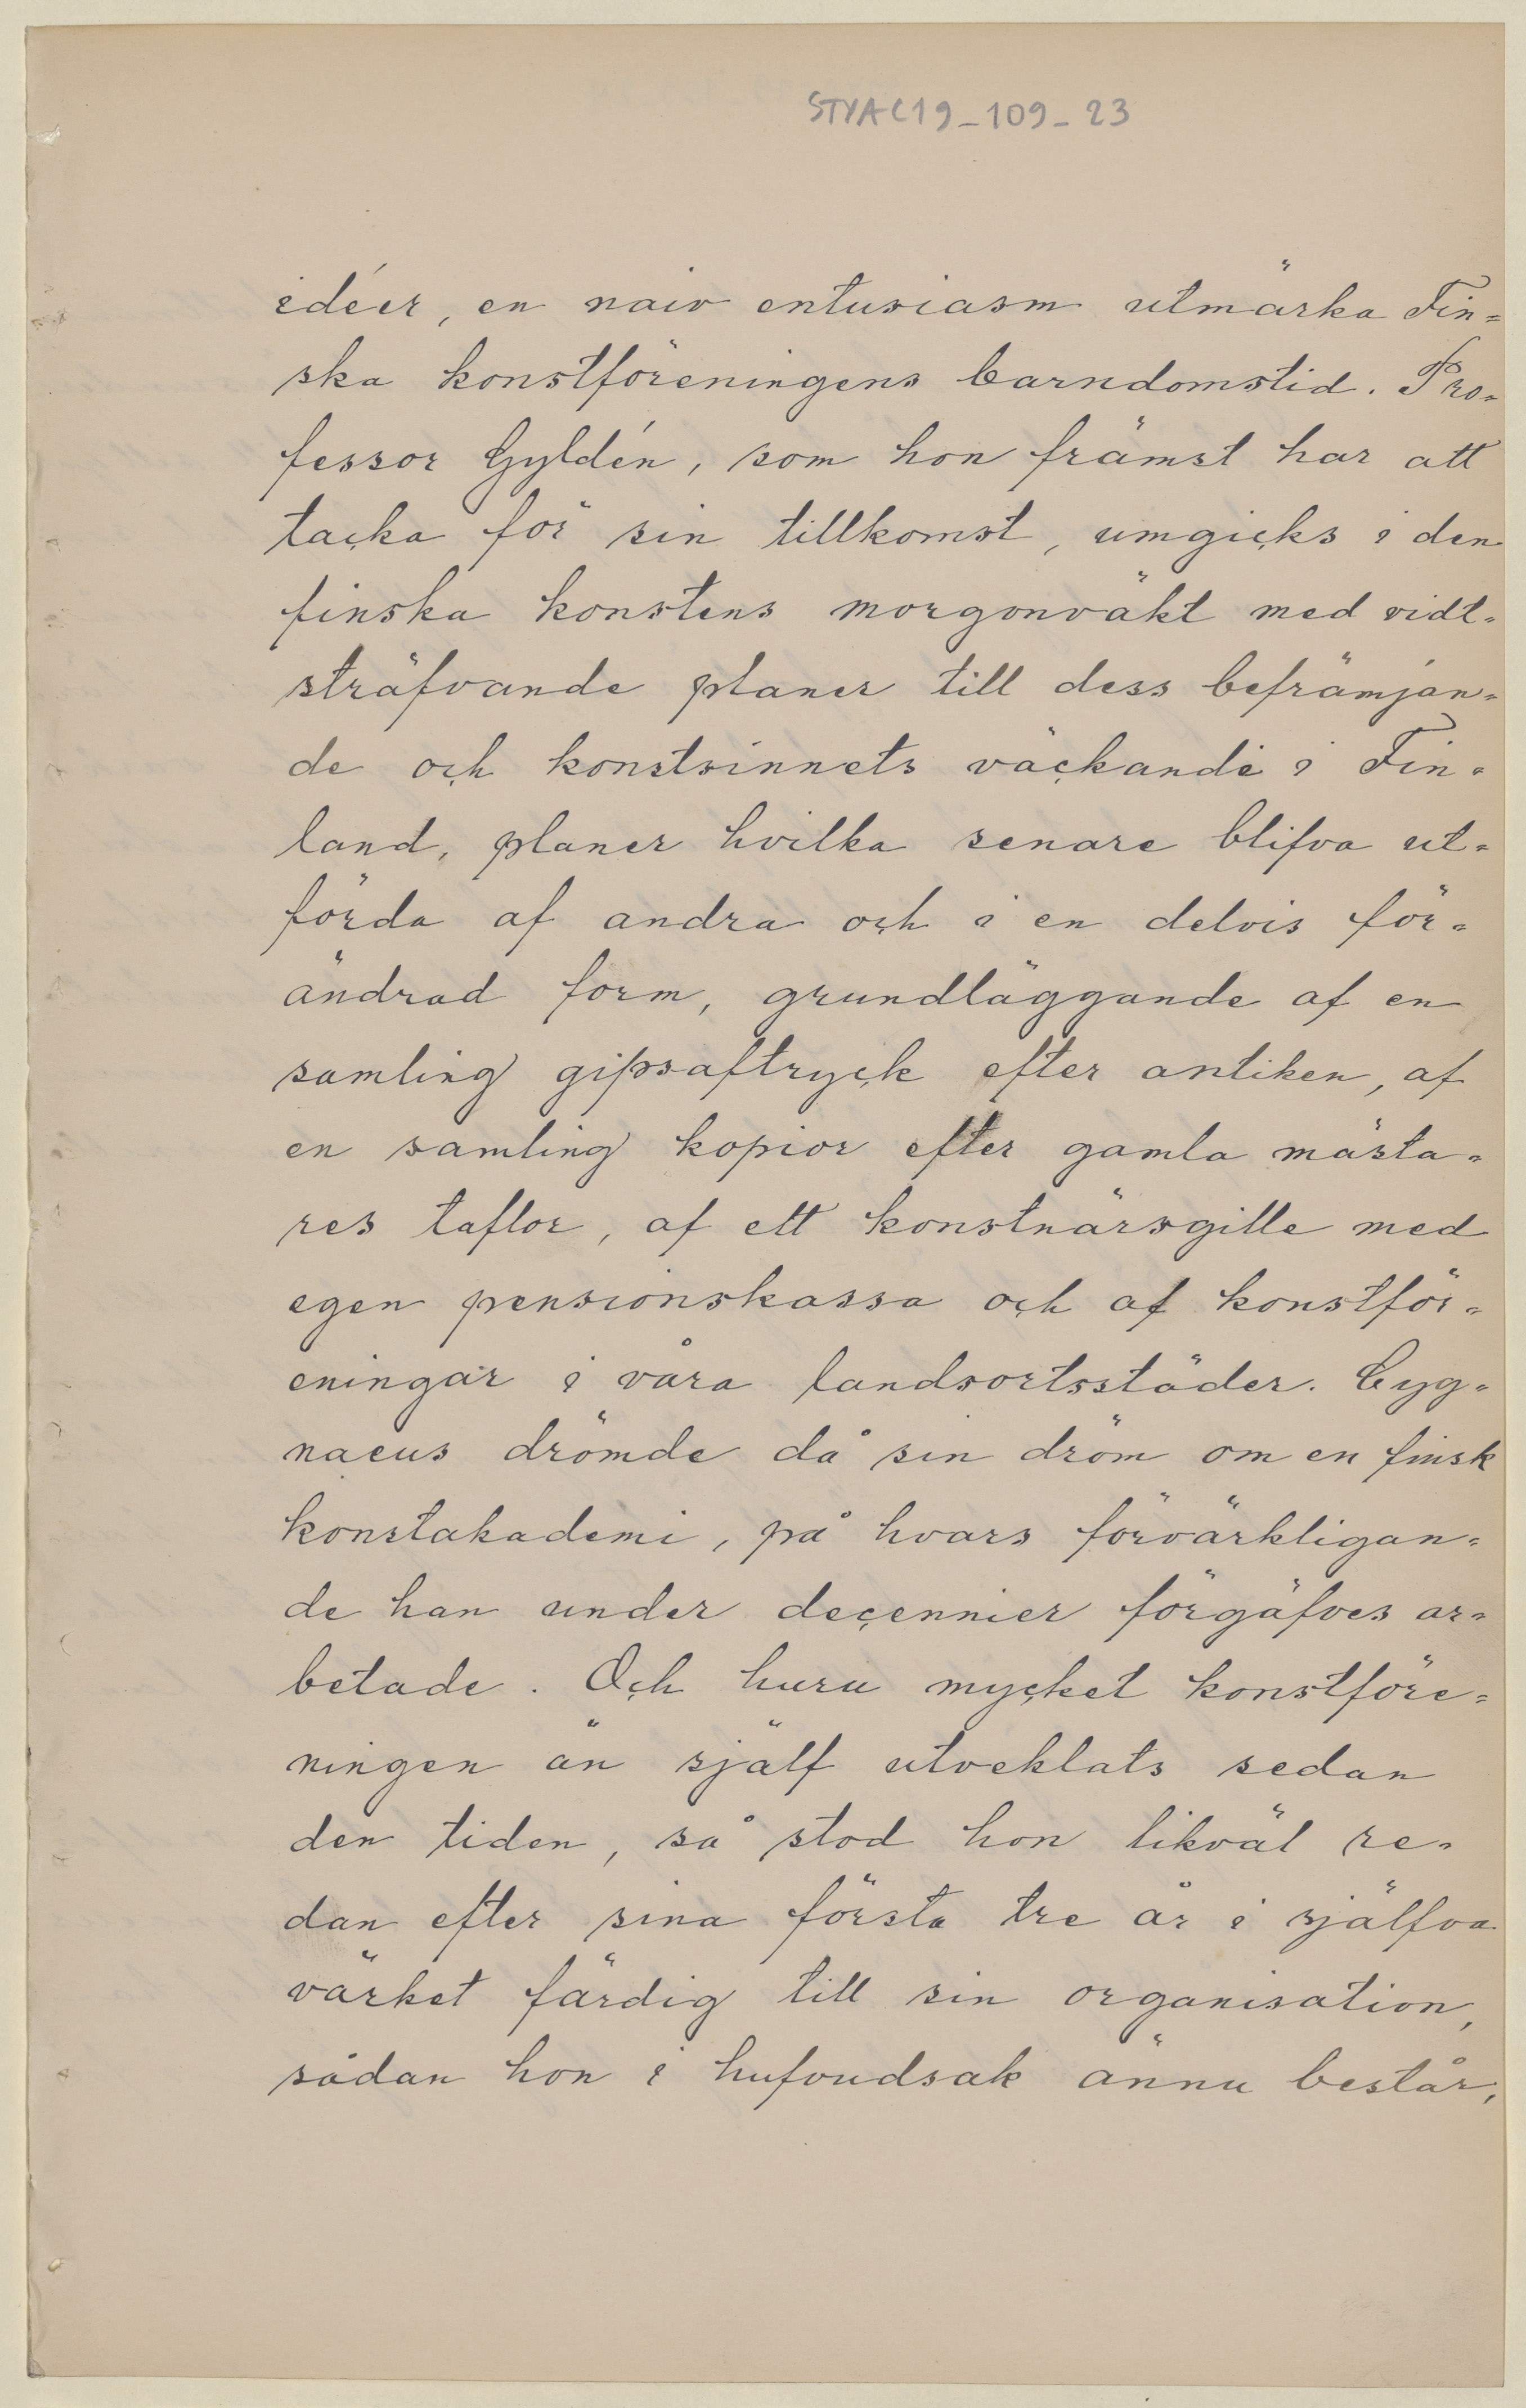 STYAC19_109_23
idéer, en naiv entusiasm utmärka Fin=
ska konstföreningens barndomstid. Pro=
fessor Gyldén, som hon främst har att
tacka för sin tillkomst, umgicks i den
finska konstens morgonväkt med vidt=
sträfvande planer till dess befrämjan=
de och konstsinnets väckande i Fin=
land, planer hvilka senare blifva ut=
förda af andra och i en delvis för=
ändrad form, grundläggande af en
samling gipsaftryck efter antiken, af
en samling kopior efter gamla mästa=
res taflor, af ett konstnärsgille med
egen pensionskassa och af konstför=
eningar i våra landsortsstäder. Cyg=
naeus drömde då sin dröm om en finsk
konstakademi, på hvars förvärkligan=
de han under decennier förgäfves ar=
betade. Och huru mycket konstföre=
ningen än själf utveklats sedan
den tiden, så stod hon likväl re=
dan efter sina första tre år i själfva
värket färdig till sin organisation,
sådan hon i hufvudsak ännu består,